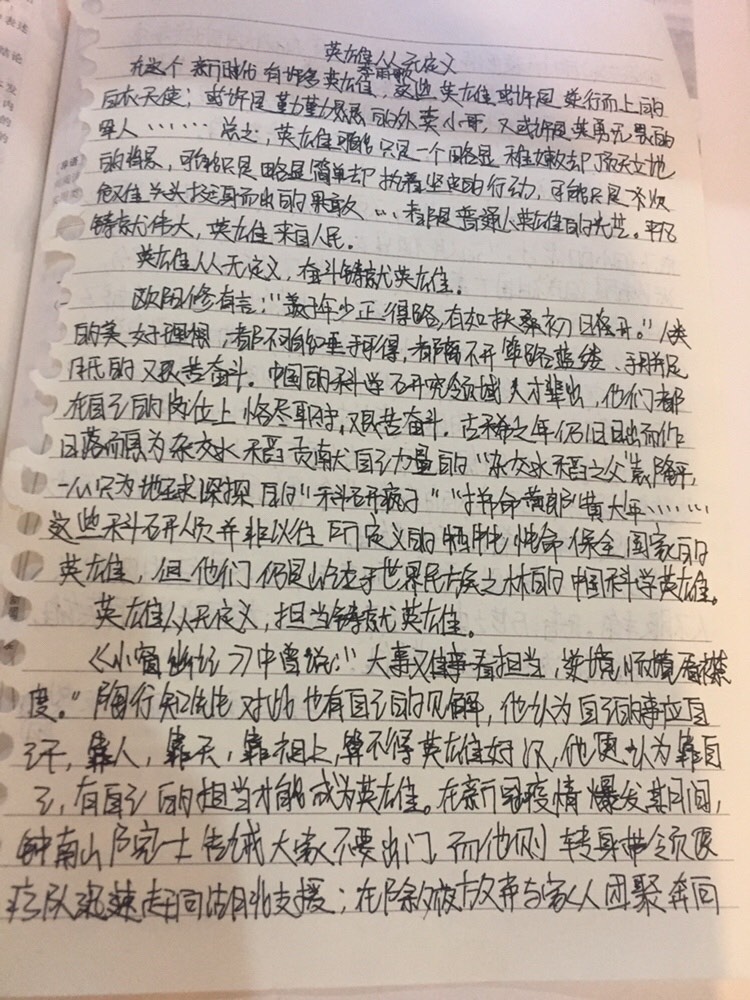 英雄从无定义
李雨歌
在这个新时代有许多英雄,这些英雄或许是逆行而上的
白衣天使;或许是勤勤恳恳的外卖小哥,又或许是英勇无畏的
军人……总之,英雄可能只是一个略显稚嫩却顶天立地
的背影,可能只是略显简单却执着坚定的行动,可能只是不畏
危难关头挺身而出的果敢…都是普通人英雄的光芒。平凡
铸就伟大,英雄来自人民。
英雄从无定义,奋斗铸就英雄。
欧阳修有言:“羡子年少正得路,有如扶桑初日升。”人类
的美好理想,都不可能唾手可得,都离不开筚路蓝缕、手胼足
胝的艰苦奋斗.中国的科学研究领域人才辈出,他们都
在自己的岗位上恪尽职守,艰苦奋斗.古稀之年仍旧日出而作
日落而息为杂交水稻贡献自己力量的“杂交水稻之父”袁隆平,
一心只为地球深探的“科研疯子”“拼命黄郎”黄大年……
这些科研人员并非以往所定义的牺牲性命保全国家的
英雄,但他们仍是屹立于世界民族之林的中国科学英雄。
英雄从无定义,担当铸就英雄。
《小窗幽记》中曾说:“大事难事看担当,逆境顺境看襟
度。”陶行知先生对此也有自己的见解,他认为自己的事应自
己干,靠人,靠天,靠祖上,算不得英雄好汉,他更认为靠自
己,有自己的担当才能成为英雄。在新冠疫情爆发期间,
钟南山院士告诫大家不要出门,而他则转身带领医
疗队迅速赶向湖北支援;在除夕夜放弃与家人团聚奔向